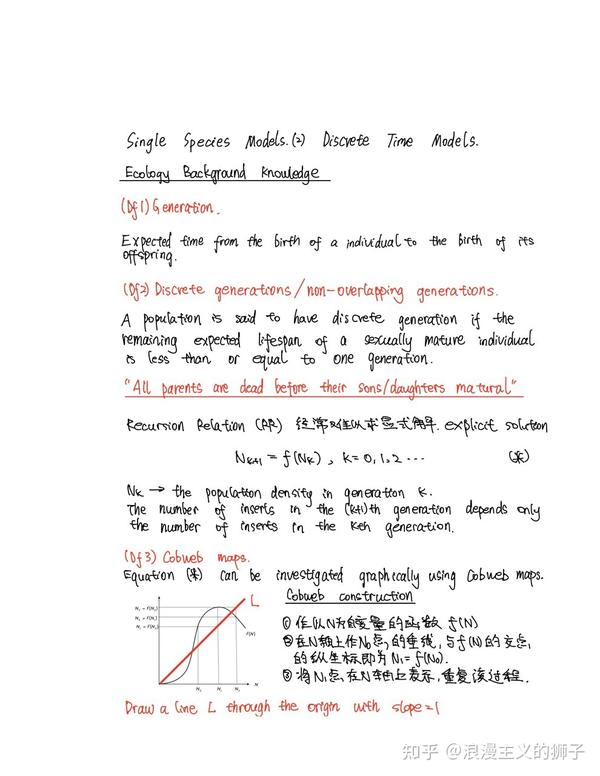 Single Species Models.(2) Discrete Time Models.
Ecology Background Knowledge
(Df1) Generation.
Expected time from the birth of a individual to the birth of its
offspring.
(Df2) Discrete generations/non-overlapping generations.
A population is said to have discrete generation if the
remaining expected lifespan of a sexually mature individual
is less than or equal to one generation.
"All parents are dead before their sons/daughters matural"
Recursion Relation (RR) 经常难以求显式解. explicit solution
Nk+1 = f(Nk), k=0,1,2... (※)
Nk → the population density in generation k.
The number of inserts in the (k+1)th generation depends only
the number of inserts in the kth generation.
(Df3) Cobweb maps.
Equation (※) can be investigated graphically using Cobweb maps.
Cobweb construction
① 作以N为自变量的函数 f(N)
② 在N轴上作N0点的垂线, 与f(N)的交点,
的纵坐标即为 N1=f(N0).
③ 将N1点在N轴上表示, 重复该过程.
L
F(N)
N
Draw a line L through the origin with slope=1
知乎 @浪漫主义的狮子